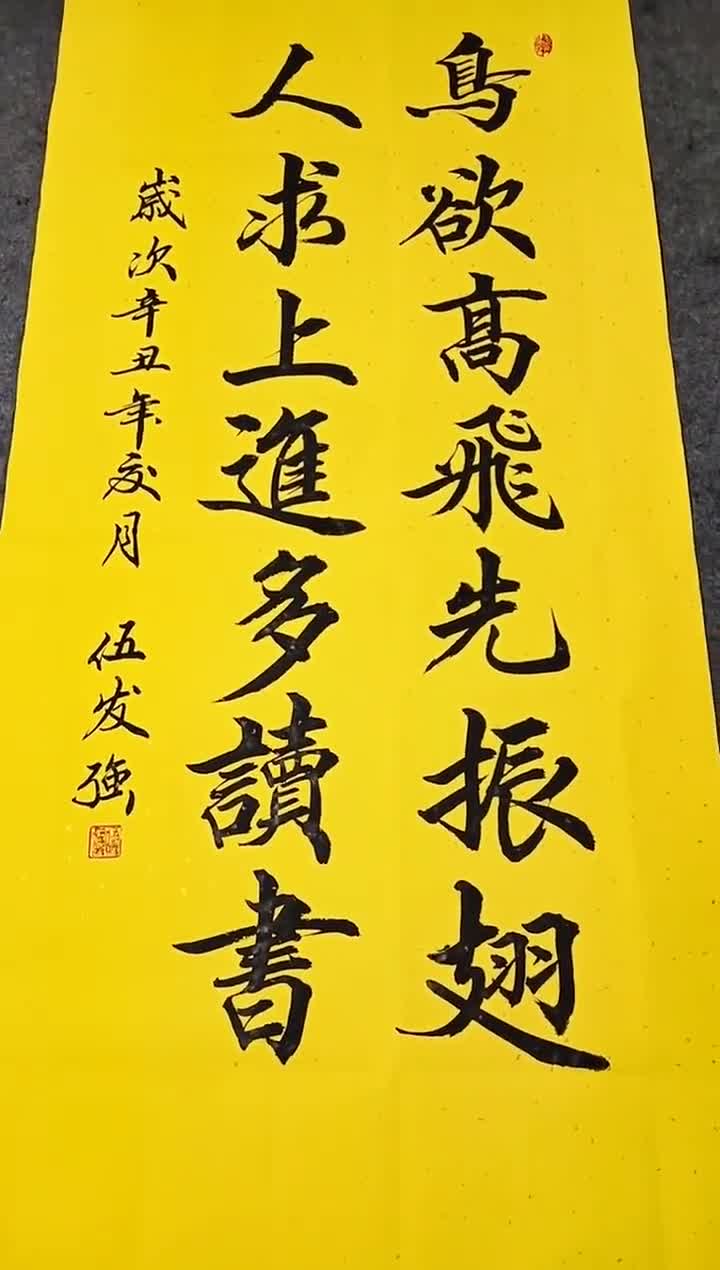 鳥欲高飛先振翅
人求上進多讀書
歲次辛丑年夏月 伍发強